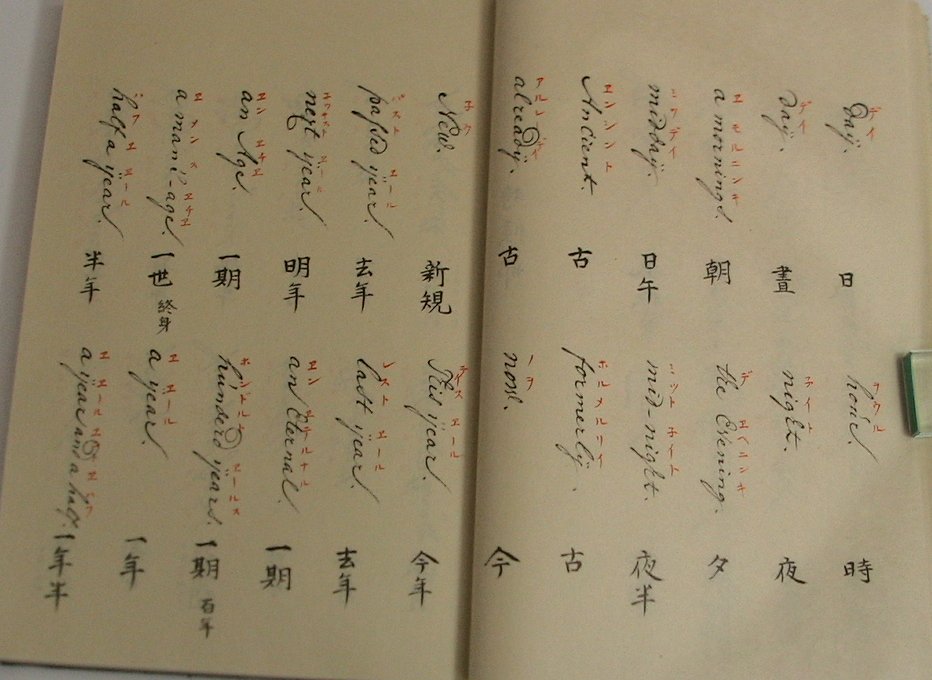 デイ
day. 日
ヲウル
hour. 時
デイ
day. 晝
ナイト
night. 夜
エ モルニンキ
a mornings. 朝
デ エヘニンキ
the Evening. 夕
ミッデイ
midday. 日午
ミットナイト
mid-night. 夜半
エンシント
Ancient. 古
ホルメルリイ
formerly. 古
already. 古
ノヲ
now. 今
New. 新規
エール
This year. 今年
パスト エール
passed year. 去年
レスト エール
last year. 去年
エール
next year. 明年
エン エチルナル
an Eternal. 一期
エン エチエ
an Age. 一期
エールス
hunderd years. 一期 百年
エ メンス エチエ
a man's-age. 一世 終身
エ エール
a year. 一年
エ エール
half a year. 半年
エ エール
a year and a half. 一年半